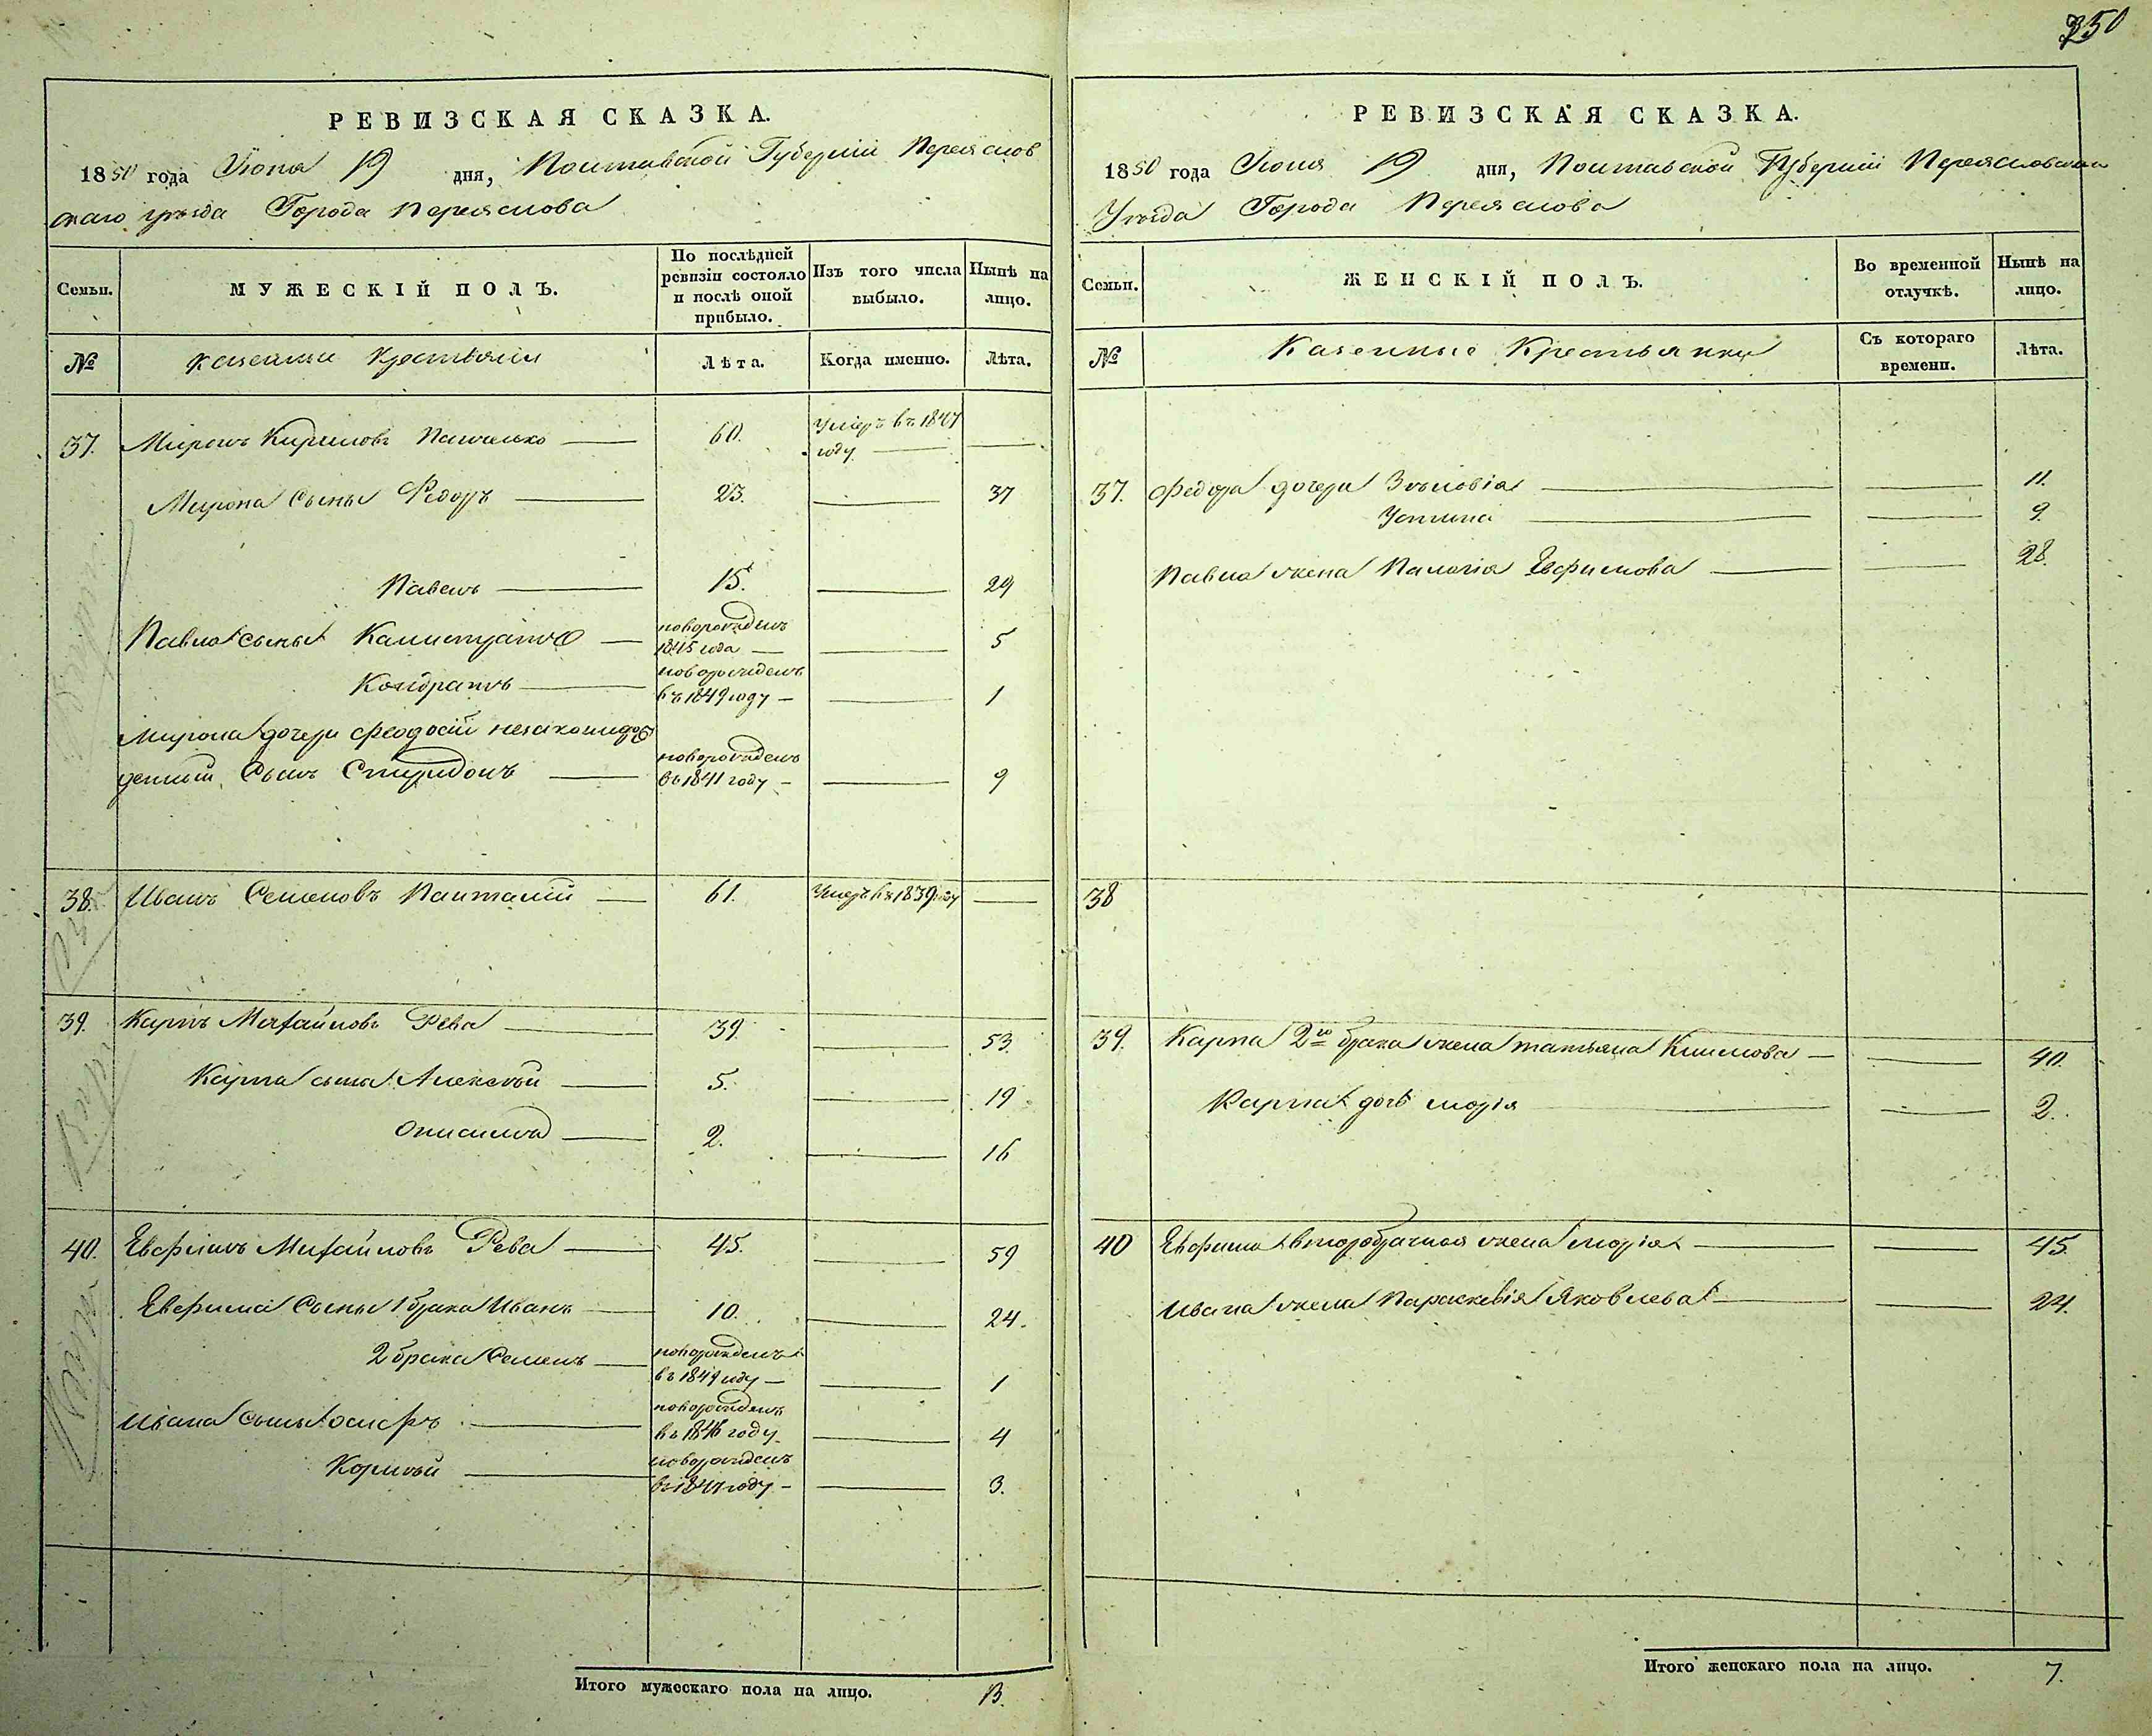 250
РЕВИЗСКАЯ СКАЗКА.
1850 года Июня 19 дня, Полтавской Губерніи Переяслов
скаго уѣзда Города Переяслова
Семьи.
МУЖЕСКІЙ ПОЛЪ.
По послѣдней
ревизіи состояло
и послѣ оной
прибыло.
Изъ того числа
выбыло.
Нынѣ на
лицо.
№
Казенные Крестьяни
Лѣта.
Когда именно.
Лѣта.
37. Миронъ Кириловъ 60. Умеръ въ 1847
году
Мирона Сыны Федоръ 23. 37
Павелъ 15. 29
Павла сыны Калистратъ новорожденъ
1845 года 5
Кондратъ новорожденъ
въ 1849 году 1
Мирона дочери Феодосіи незаконнорож
денный Сынъ Спиридонъ новорожденъ
въ 1841 году 9
38. Иванъ Семеновъ 61. Умеръ въ 1839 году
39. Карпъ Михайловъ Рева 39. 53.
Карпа сыны Алексѣй 5. 19
Онисимъ 2. 16
40. Евфимъ Михайловъ Рева 45. 59
Евфима Сыны 1 брака Иванъ 10. 24.
2 брака Семенъ новорожденъ
въ 1849 году 1
Ивана сыны Осифъ новорожденъ
въ 1846 году 4
Корнѣй новорожденъ
въ 1847 году 3.
Итого мужескаго пола на лицо. 13.
РЕВИЗСКАЯ СКАЗКА.
1850 года Июня 19 дня, Полтавской Губерніи Переясловскаго
Уѣзда Города Переяслова
Семьи.
ЖЕНСКІЙ ПОЛЪ.
Во временной
отлучкѣ.
Нынѣ на
лицо.
№
Казенные Крестьянки
Съ котораго
времени.
Лѣта.
37. Федора дочери Зѣновія 11.
Устина 9.
Павла жена Палагія Евфимова 28.
38
39. Карпа 2го брака жена татьяна Климова 40.
Карпа дочь марія 2.
40 Евфима второбрачная жена марія 45.
Ивана жена Параскевія Яковлева 24.
Итого женскаго пола на лицо. 7.